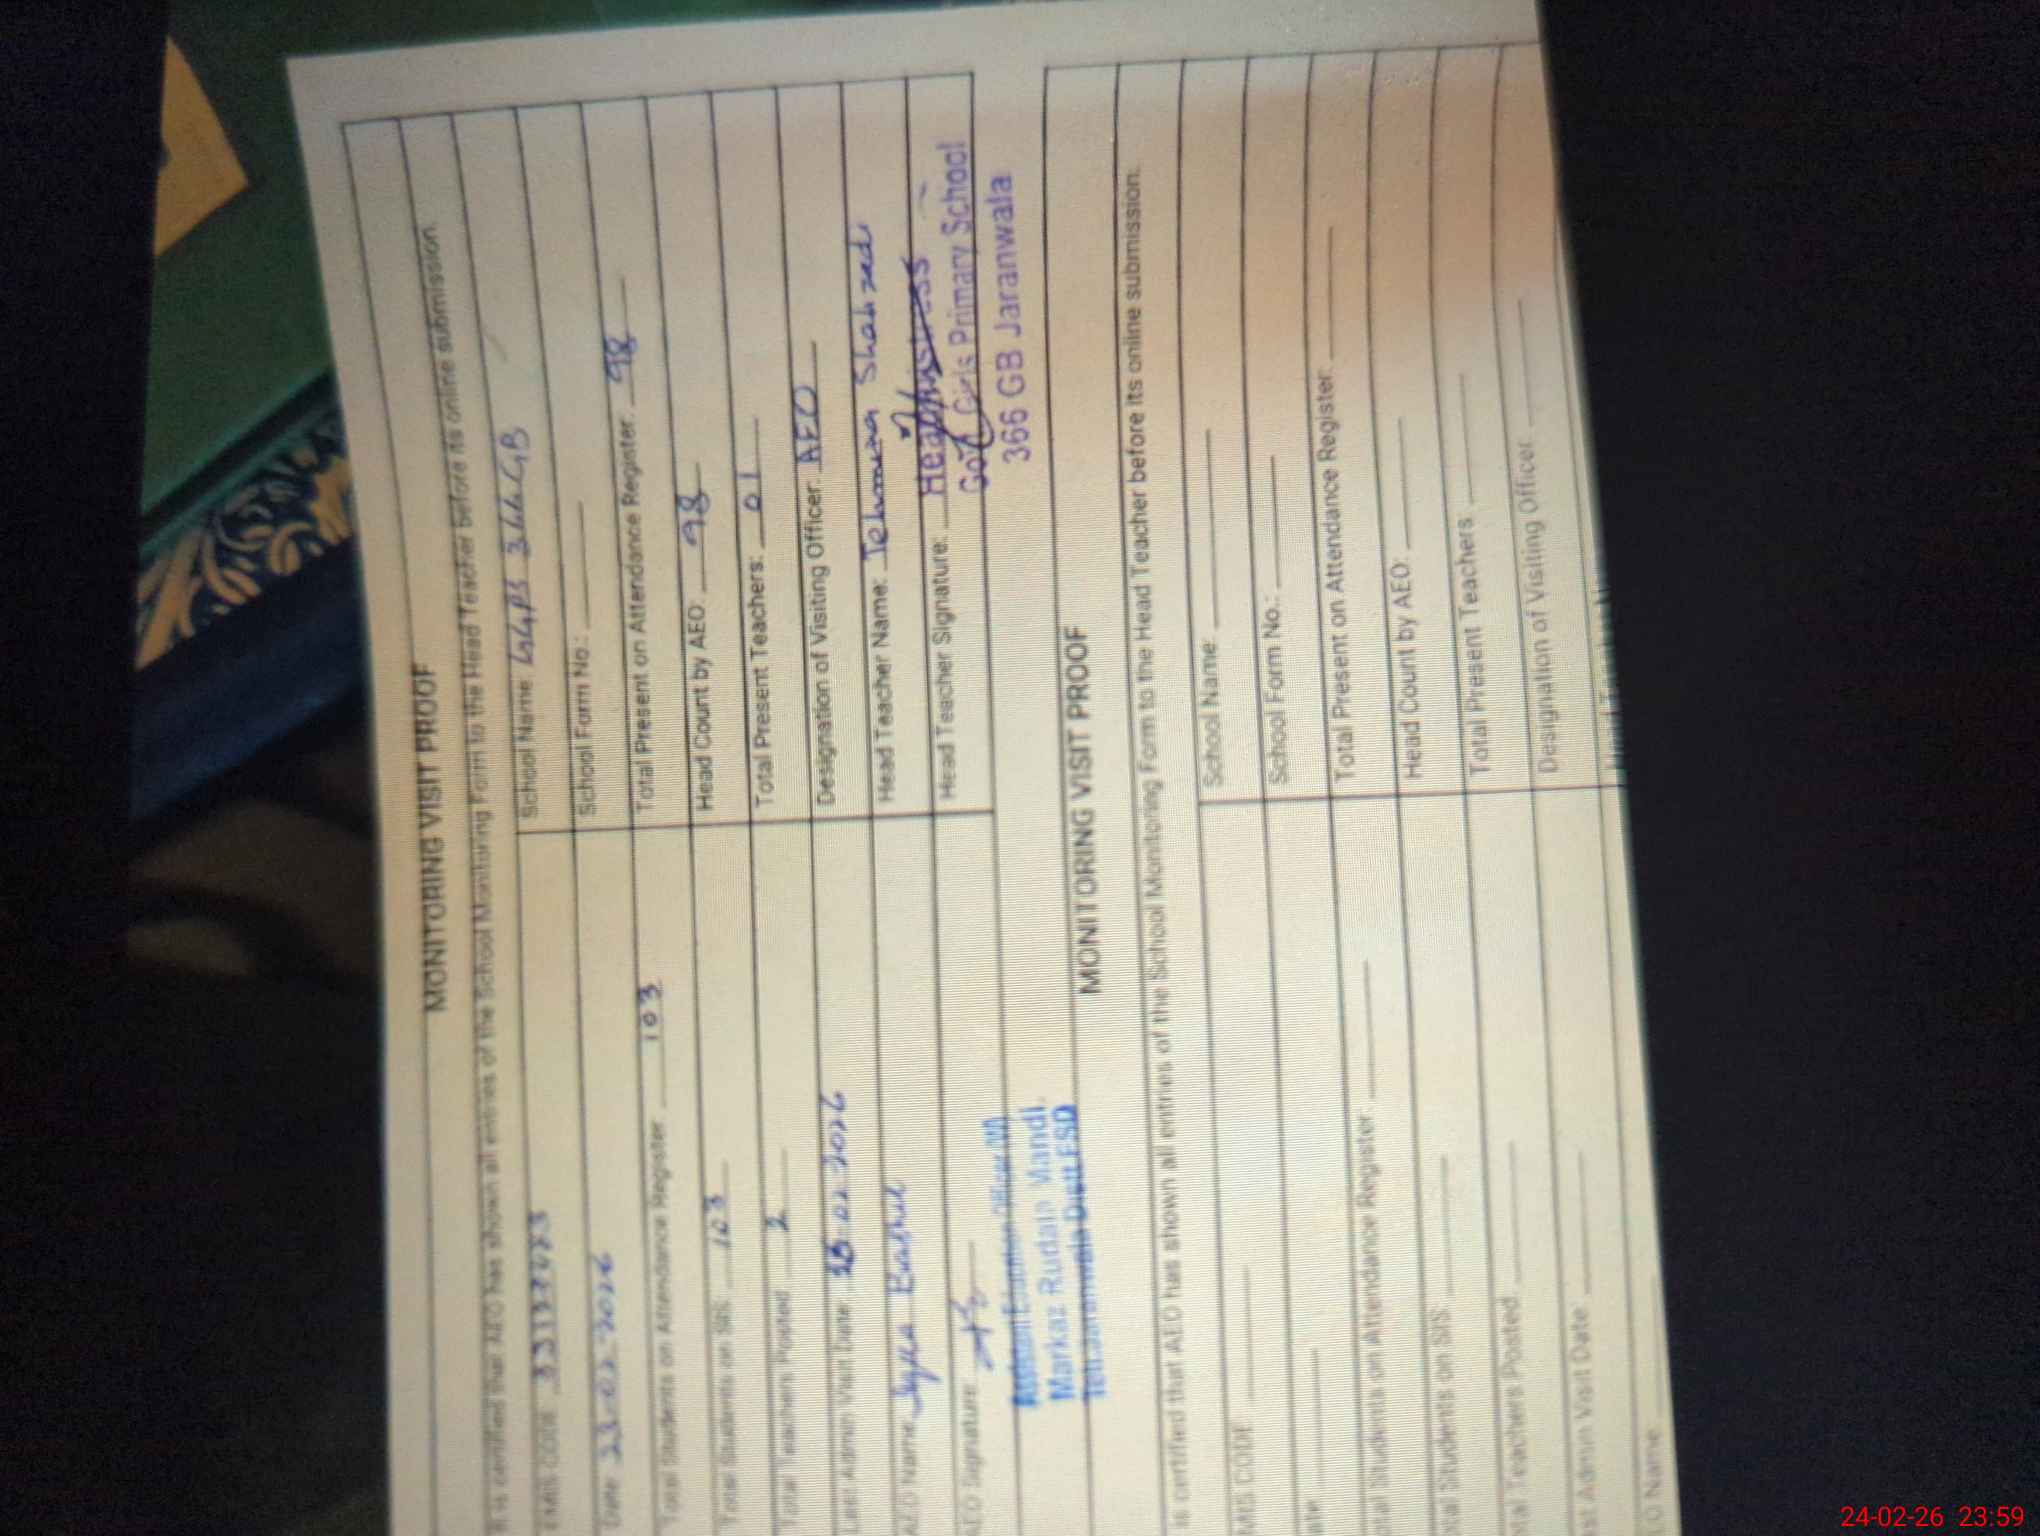 MONITORING VISIT PROOF
It is certified that AEO has shown all entries of the School Monitoring Form to the Head Teacher before its online submission.
EMIS CODE School Name: GGPS 366 GB
Date 23.02.2026 School Form No.:
Total Students on Attendance Register: 103 Total Present on Attendance Register: 98
Total Students on SIS: 103 Head Count by AEO: 98
Total Teachers Posted 2 Total Present Teachers: 01
Last Admin Visit Date: .02.2026 Designation of Visiting Officer: AEO
AEO Name Bashir Head Teacher Name: Tehmina Shahzadi
AEO Signature Head Teacher Signature:
Headmistress
Govt Girls Primary School
366 GB Jaranwala
Assistant Education Officer (W)
Markaz Rudala Mandi
Teh. Jaranwala Distt. FSD
MONITORING VISIT PROOF
is certified that AEO has shown all entries of the School Monitoring Form to the Head Teacher before its online submission.
MIS CODE School Name:
ate School Form No.:
tal Students on Attendance Register: Total Present on Attendance Register:
tal Students on SIS: Head Count by AEO:
tal Teachers Posted: Total Present Teachers:
st Admin Visit Date: Designation of Visiting Officer
EO Name
24-02-26 23:59